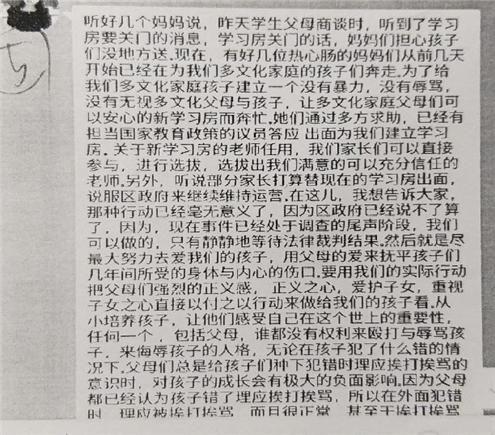 听好几个妈妈说，昨天学生父母商谈时，听到了学习
房要关门的消息，学习房关门的话，妈妈们担心孩子
们没地方送.现在，有好几位热心肠的妈妈们从前几天
开始已经在为我们多文化家庭的孩子们奔走.为了给
我们多文化家庭孩子建立一个没有暴力，没有辱骂，
没有无视多文化父母与孩子，让多文化家庭父母们可
以安心的新学习房而奔忙.她们通过多方求助，已经有
担当国家教育政策的议员答应 出面为我们建立学习
房. 关于新学习房的老师任用，我们家长们可以直接
参与，进行选拔，选拔出我们满意的可以充分信任的
老师.另外，听说部分家长打算替现在的学习房出面，
说服区政府来继续维持运营.在这儿，我想告诉大家，
那种行动已经毫无意义了，因为区政府已经说不了算
了，因为，现在事件已经处于调查的尾声阶段，我们
可以做的，只有静静地等待法律裁判结果.然后就是尽
最大努力去爱我们的孩子，用父母的爱来抚平孩子们
几年间所受的身体与内心的伤口.要用我们的实际行动
把父母们强烈的正义感， 正义之心，爱护子女，重视
子女之心直接以付之以行动来做给我们的孩子看.从
小培养孩子，让他们感受自己在这个世上的重要性，
任何一个 ，包括父母，谁都没有权利来殴打与辱骂孩
子，来侮辱孩子的人格，无论在孩子犯了什么错的情
况下.父母们总是给孩子们种下犯错时理应挨打挨骂的
意识时，对孩子的成长会有极大的负面影响.因为父母
都已经认为孩子错了理应挨打挨骂，所以在外面犯错
时，理应被挨打挨骂，而且很正常，甚至于挨打挨骂